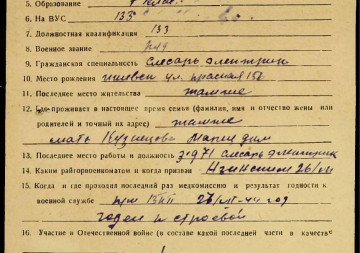 5. Образование 7 клас.
6. На ВУС 133
7. Должностная квалификация 133
8. Военное звание ряд
9. Гражданская специальность Слесарь электрик
10. Место рождения Ижевск ул. Красная 158
11. Последнее место жительства там же
12. Где проживает в настоящее время семья (фамилия, имя и отчество жены или
родителей и точный их адрес) там же
мать Кузнецова Мария Дим
13. Последнее место работы и должность з-д 71 слесарь электрик
14. Каким райгорвоенкоматом и когда призван
15. Когда и где проходил последний раз медкомиссию и результат годности к
военной службе при год
годен к строевой
16. Участие в Отечественной войне (в составе какой последней части в качестве